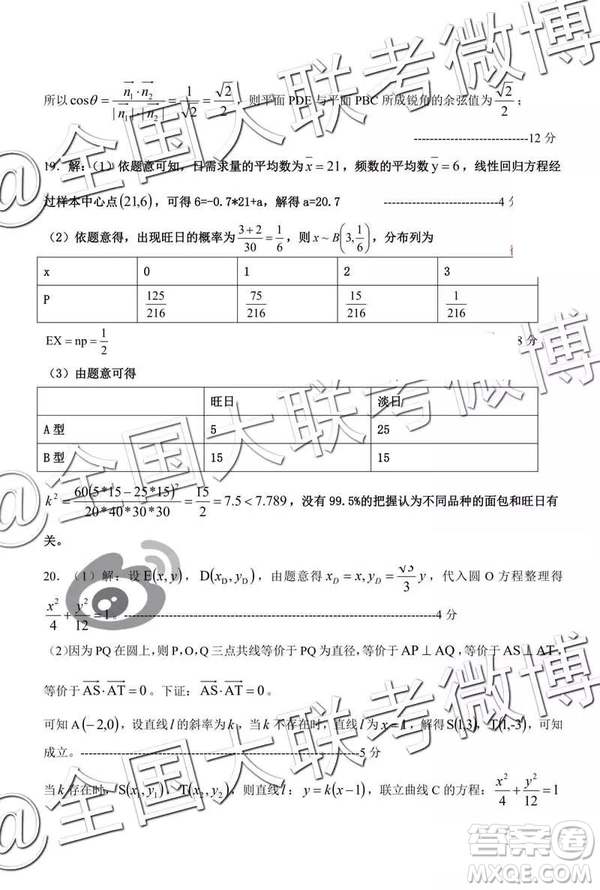 所以cosθ = n₁·n₂ / |n₁|·|n₂| = 1/√2 = √2/2，则平面 PDE 与平面 PBC 所成锐角的余弦值为 √2/2；
--------------------------12 分
19. 解：（1）依题意可知，日需求量的平均数为 x̄=21，频数的平均数 ȳ=6，线性回归方程经
过样本中心点(21,6)，可得 6=-0.7*21+a，解得 a=20.7 --------------------------4 分
（2）依题意得，出现旺日的概率为 (3+2)/30 = 1/6，则 x~B(3, 1/6)，分布列为
x 0 1 2 3
P 125/216 75/216 15/216 1/216
EX = np = 1/2 8 分
（3）由题意可得
旺日 淡日
A 型 5 25
B 型 15 15
k² = 60(5*15−25*15)² / 20*40*30*30 = 15/2 = 7.5 < 7.789，没有 99.5%的把握认为不同品种的面包和旺日有
关。
20. （1）解：设 E(x,y)，D(x_D,y_D)，由题意得 x_D = x, y_D = √3/3 y，代入圆 O 方程整理得
x²/4 + y²/12 = 1。--------------------------4 分
（2）因为 PQ 在圆上，则 P，O，Q 三点共线等价于 PQ 为直径，等价于 AP⊥AQ，等价于 AS⊥AT，
等价于 AS·AT = 0。下证：AS·AT = 0。
可知 A(−2,0)，设直线 l 的斜率为 k，当 k 不存在时，直线 l 为 x=1，解得 S(1,3)，T(1,-3)，可知
成立。--------------------------5 分
当 k 存在时，S(x₁,y₁)，T(x₂,y₂)，则直线 l：y = k(x−1)，联立曲线 C 的方程：x²/4 + y²/12 = 1
@全国大联考微博
@全国大联考微博
@全国大联考微博
答案圈
MXQE.COM